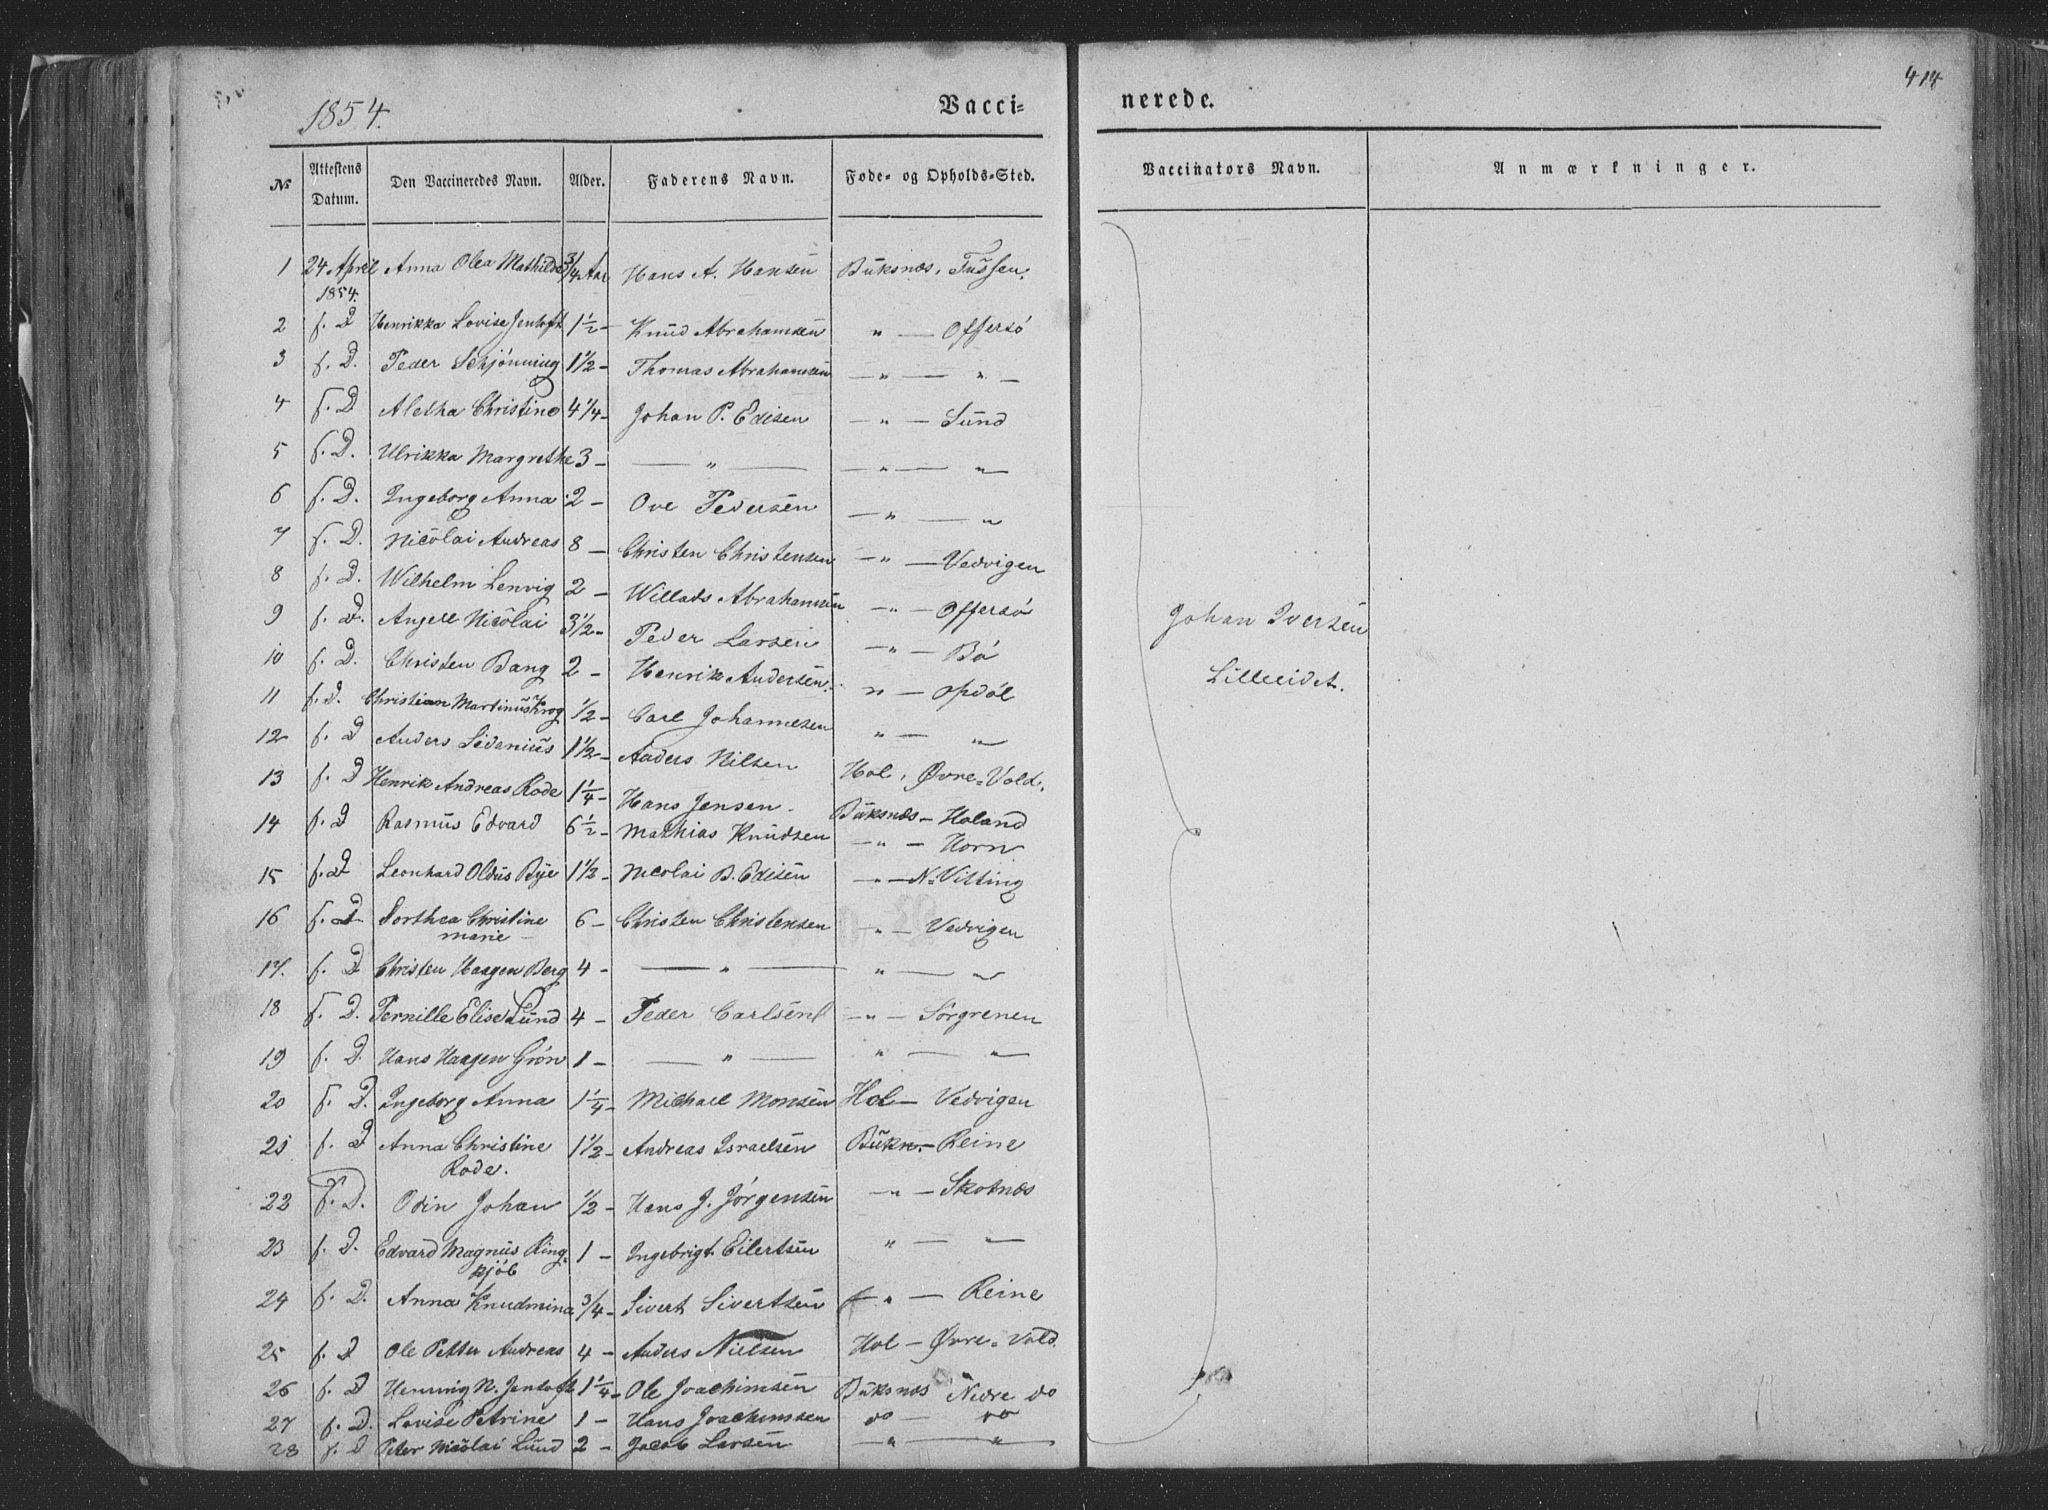 1854.
Vacci=
nerede.
414
No
Attestens Datum.
Den Vaccineredes Navn.
Alder.
Faderens Navn.
Føde= og Opholds=Sted.
Vaccinators Navn.
Anmærkninger.
1 24 April 1854. Anna Olea Mathilde 3/4 Aar Hans A. Hansen Buksnæs, Tussen.
2 f. D Henrikka Lovise Jentoft 1 1/2 - Knud Abrahamsen " — Offersö
3 f. D. Peder Schjönning 1 1/2 - Thomas Abrahamsen — " — " —
4 f. D Aletha Christine 4 1/4 - Johan P. Edisen — " — Sund
5 f. D. Ulrikka Margrethe 3 - — " — — " — "
6 f. D. Ingeborg Anna 2 - Ove Pedersen — " — "
7 f. D. Nicolai Andreas 8 - Christen Christensen — " — Vedvigen
8 f. D. Wilhelm Lenvig 2 - Willads Abrahamsen — " — Offersö
9 f. D. Angell Nicolai 3 1/2 - Peder Larsen — " — Bö
10 f. D. Christen Bang 2 - Henrik Andersen. " — Opdöl
11 f. D. Christian Martinus Krog 1/2 - Carl Johannesen " — "
12 f. D Anders Sidenius 1 1/2 - Anders Nilsen Hol, Øvre=Vold.
13 f. D Henrik Andreas Rode 1 1/4 - Hans Jensen - Buksnæs - Holand
14 f. D Rasmus Edvard 6 1/2 - Mathias Knudsen — " — Horn
15 f. D Leonhard Oldus Bye 1 1/2 - Nicolai B. Edisen — " — N. Vitting
16 f. D Dorthea Christine 6 - Christen Christensen — " — Vedvigen
Marie -
17. f. D Christen Haagen Berg 4 - — " — " — "
18 f. D. Pernille Elise Lund 4 - Peder Carlsen — " — Sörgrenen
19 f. D. Hans Haagen Grön 1 - — " — " — "
20 f. D. Ingeborg Anna 1 1/4 - Michael Monsen Hol — Vedvigen
21 f. D Anna Christine 1 1/2 - Andreas Israelsen Bukn. - Reine
Rode.
22 f. D. Odin Johan 1/2 - Hans J. Jörgensen — " — Skotnæs
23 f. D. Edvard Magnus Ring= 1 - Ingebrigt Eilertsen " — "
kjöb
24 f. D. Anna Knudmina 3/4 - Sivert Sivertsen " — Reine
25 f. D Ole Petter Andreas 4 - Anders Nielsen Hol — Øvre=Vold.
26 f. D Henning N. Jentoft 1 1/4 - Ole Joachimsen Buksnæs Nedre do
27 f. D. Lovise Petrine 1 - Hans Joachimsen do — do
28 f. D Peter Nicolai Lund 2 - Jacob Larsen — " — "
Johan Iversen
Lilleeidet.